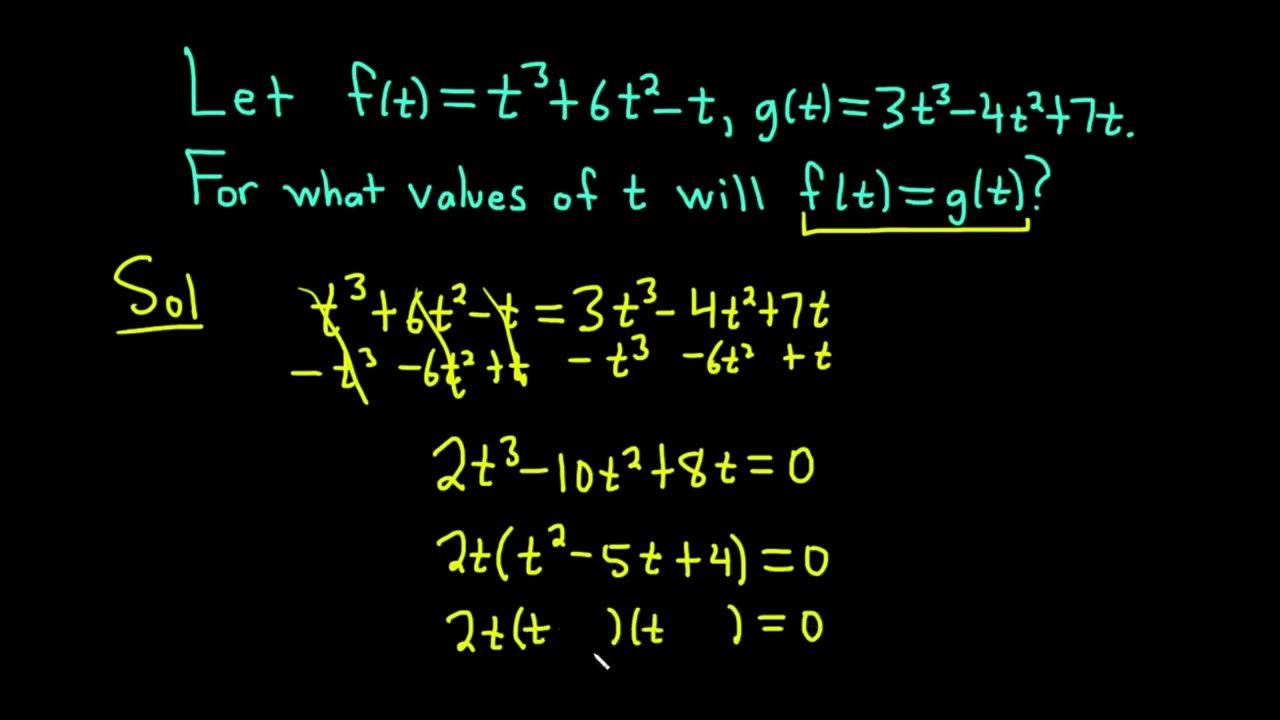 Let f(t) = t³ + 6t² - t, g(t) = 3t³ - 4t² + 7t.
For what values of t will f(t) = g(t)?
Sol t³ + 6t² - t = 3t³ - 4t² + 7t
- t³ - 6t² + t - t³ - 6t² + t
2t³ - 10t² + 8t = 0
2t(t² - 5t + 4) = 0
2t(t )(t ) = 0